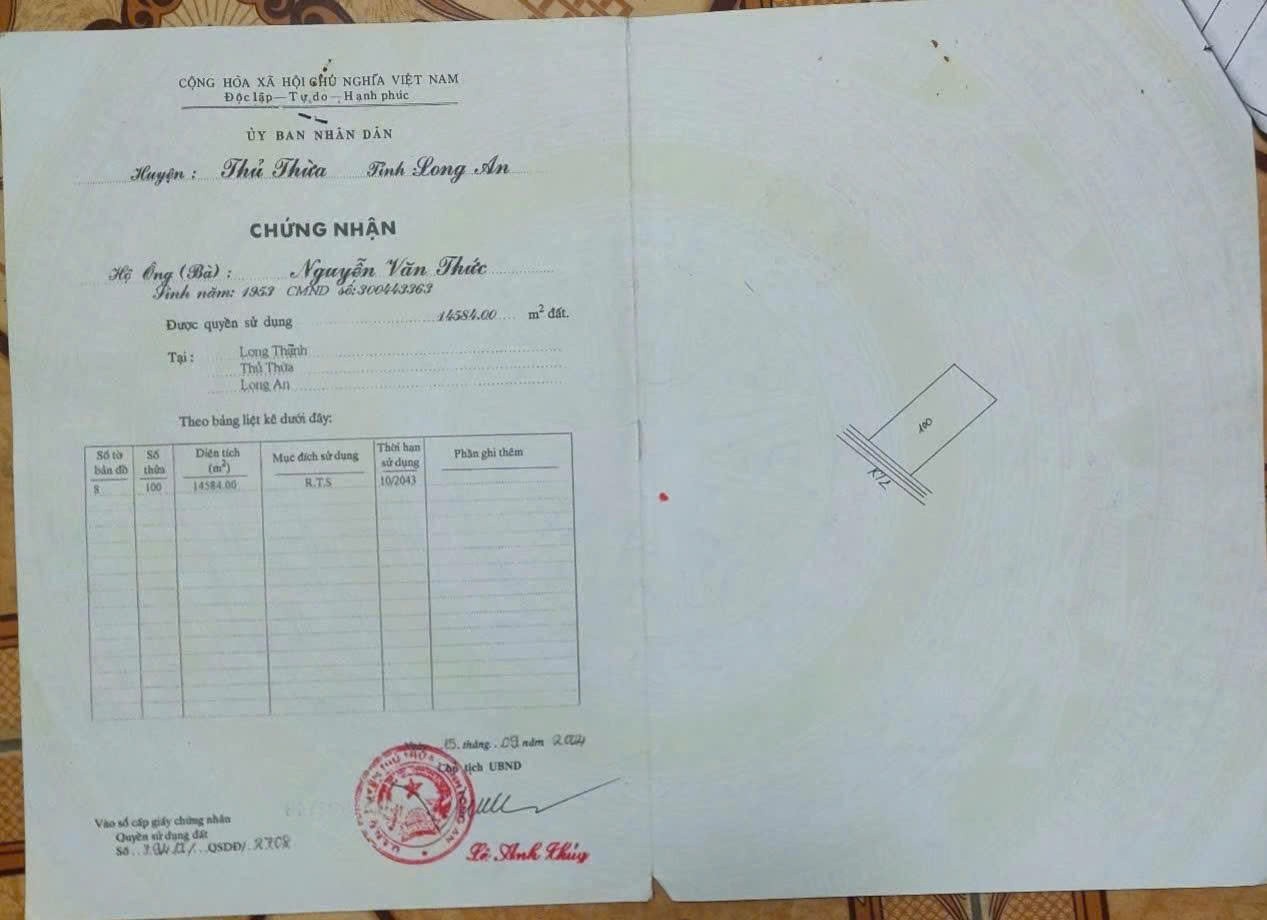 CỘNG HÒA XÃ HỘI CHỦ NGHĨA VIỆT NAM
Độc lập — Tự do — Hạnh phúc
ỦY BAN NHÂN DÂN
Huyện : Thủ Thừa Tỉnh Long An
CHỨNG NHẬN
Hộ Ông (Bà) : Nguyễn Văn Thức
Sinh năm: 1953 CMND số: 300443363
Được quyền sử dụng 14584.00 m² đất.
Tại : Long Thạnh
Thủ Thừa
Long An
Theo bảng liệt kê dưới đây:
Số tờ bản đồ Số thửa Diện tích (m²) Mục đích sử dụng Thời hạn sử dụng Phần ghi thêm
8 100 14584.00 R.T.S 10/2043
100
Ngày 15 tháng 09 năm 2004
Chủ tịch UBND
Vào sổ cấp giấy chứng nhận
Quyền sử dụng đất
Số QSDĐ/
Lê Anh Thúy